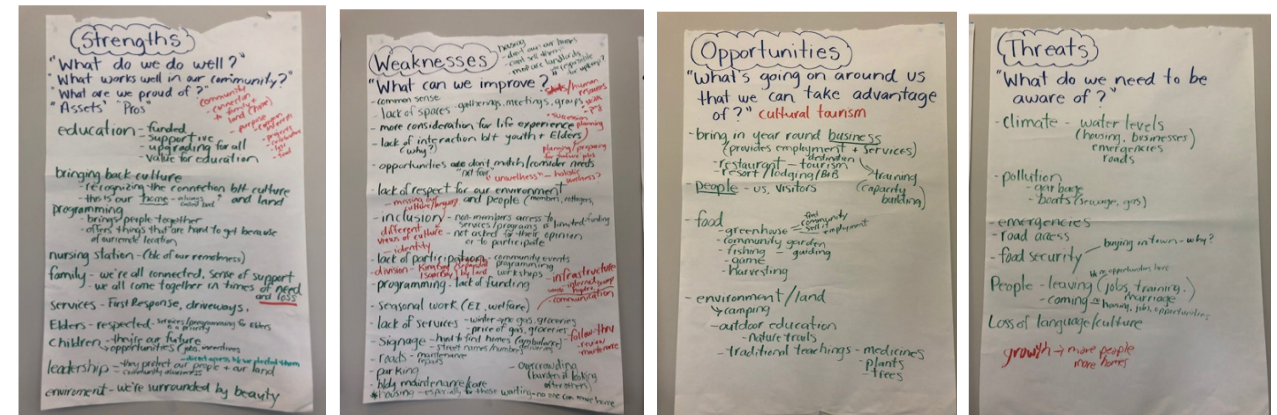 Strengths
"What do we do well?"
"What works well in our community?"
"What are we proud of?"
"Assets" "Pros"
community
connection
to family +
land (home)
- purpose
education - funded
- supportive
- upgrading for all
- value for education
bringing back culture
- recognizing the connection b/t culture
- this is our home - always come back and land
programming
- brings people together
- offers things that are hard to get because
of our remote location
nursing station - (b/c of our remoteness)
family - we're all connected, sense of support
- we all come together in times of need
and loss
services - First Response, driveways,
Elders - respected - services/programming for Elders
is a priority
children - their our future
opportunities (jobs,
leadership - they protect our people + our land
enviroment - we're surrounded by beauty
Weaknesses
housing
- don't own our homes
- can't sell them
"What can we improve?"
- common sense
- lack of spaces - gatherings, meetings, groups
- more consideration for life experience
planning
- lack of interaction b/t youth + Elders)
(why?)
planning/preparing
for future jobs
- opportunities are don't match/consider needs
"not fair"
"unwellness" - holistic
wellness?
- lack of respect for our environment
and people (members,
- missing our
culture/language
- inclusion - non-members access to
services/programs is limited funding
- not asked for their opinion
or to participate
different
views of culture
- identity
- lack of participation - community events
programming
workshops
- division -
- programming - lack of funding
- infrastructure
communication
- seasonal work (EI, welfare)
- lack of services - winter - no gas, groceries
- price of gas, groceries
- signage - hard to find homes (ambulance)
- street names/numbers
- follow thru
- review
- maintenance
- roads - maintenance
repairs
- parking
- overcrowding
(burden of looking
after others)
- bldg maintenance/care
* housing - especially for those waiting - no one can move home
Opportunities
"What's going on around us
that we can take advantage
of?" cultural tourism
- bring in year round business
(provides employment + services)
- restaurant - tourism
destination
- resort/lodging/B+B
training
(capacity
building)
- people - us, visitors
- food
- greenhouse
feed
community
sell it
employment
- community garden
- fishing - guiding
- game
- harvesting
- environment/land
camping
- outdoor education
- nature trails
- traditional teachings - medicines
- plants
- trees
Threats
"What do we need to be
aware of?"
- climate - water levels
(housing, businesses)
emergencies
roads
- pollution
- garbage
- boats (sewage, gas)
- emergencies
- road access
- food security
buying in town - why?
People - leaving (jobs, training,
marriage
- coming - housing, jobs, opportunities
Loss of language/culture
growth → more people
more homes